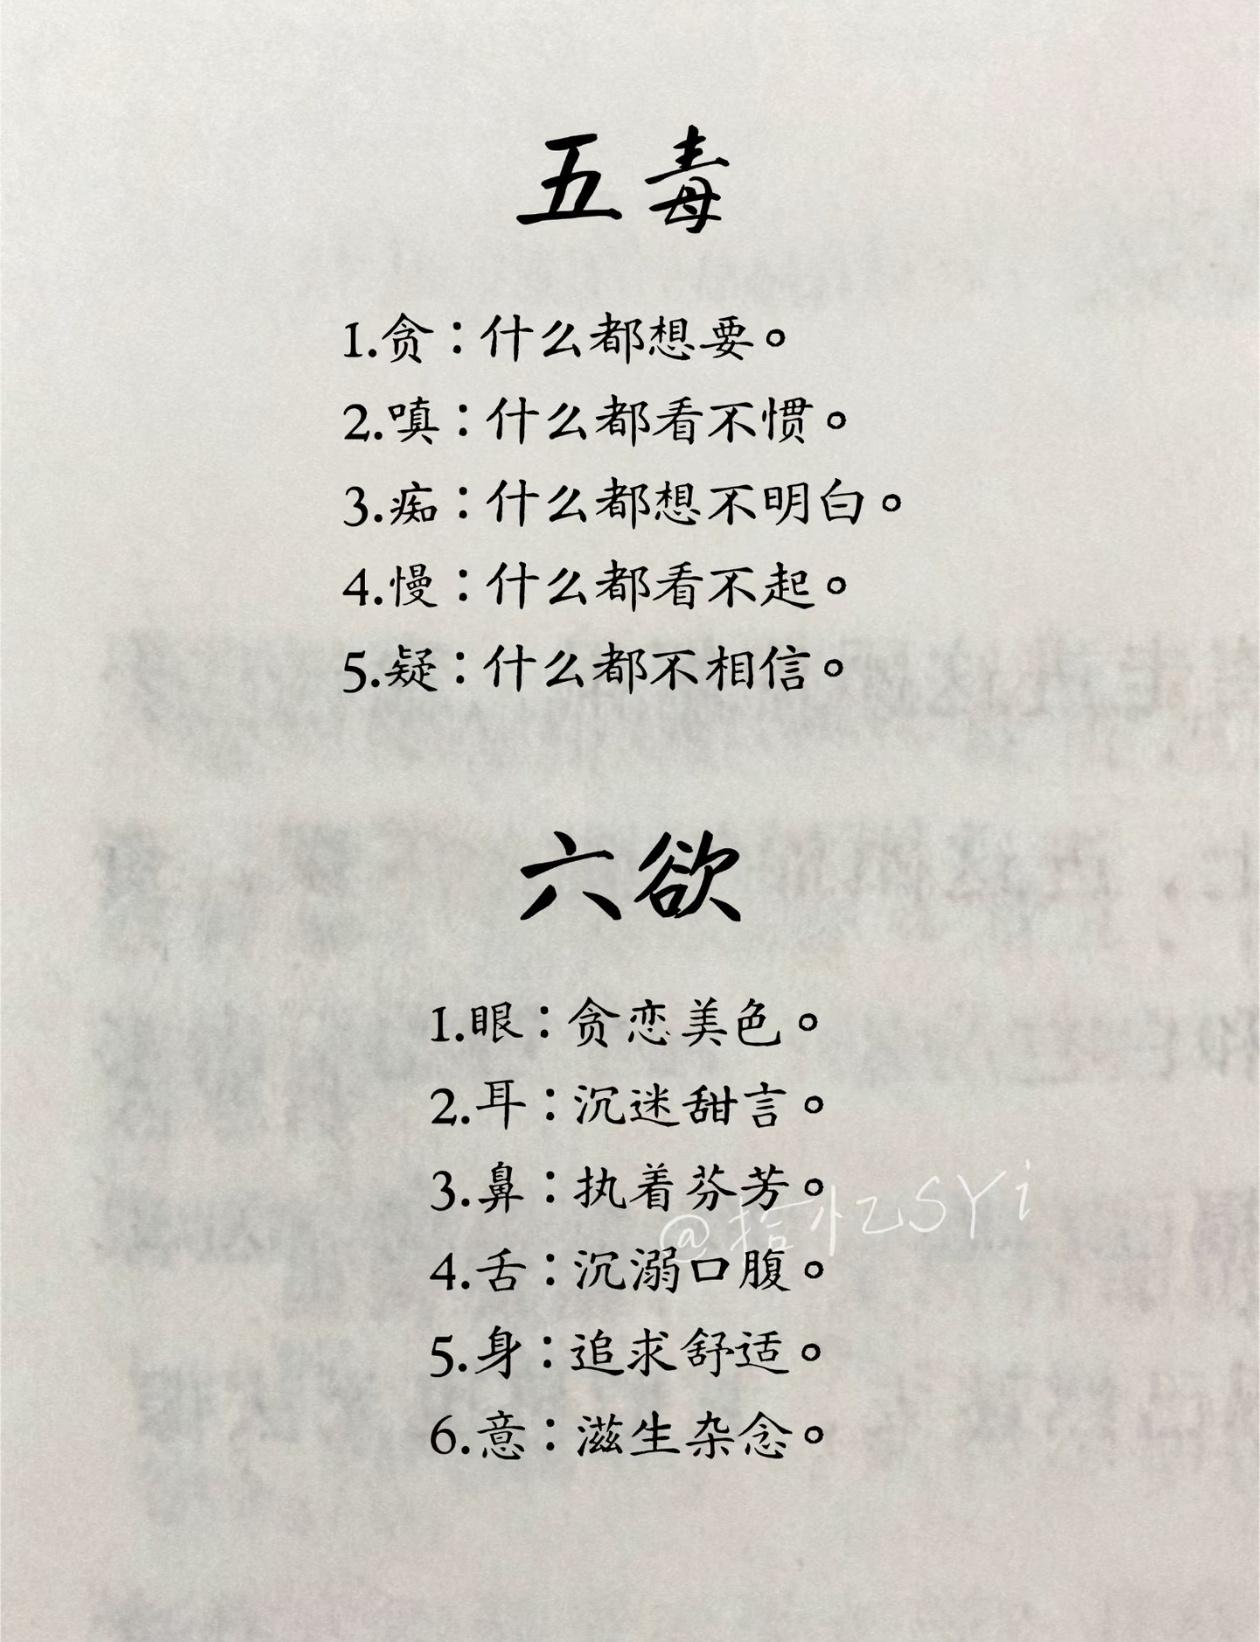 五毒
1.贪：什么都想要。
2.嗔：什么都看不惯。
3.痴：什么都想不明白。
4.慢：什么都看不起。
5.疑：什么都不相信。
六欲
1.眼：贪恋美色。
2.耳：沉迷甜言。
3.鼻：执着芬芳。
@拾忆SYi
4.舌：沉溺口腹。
5.身：追求舒适。
6.意：滋生杂念。